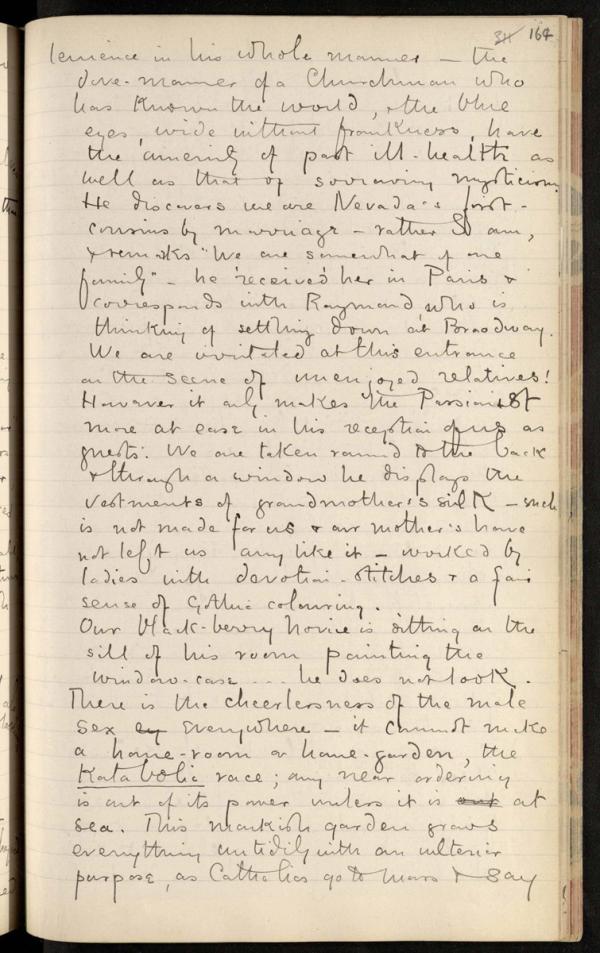 311 164
lenience in his whole manner – the
dove-manner of a Churchman who
has known the world, & the blue
eyes, wide without frankness, have
the of past ill-health as
well as that of mysticism.
He discovers we are Nevada's first-
cousins by marriage – rather so am,
& remarks "We are somewhat of one
family" – he 'received' her in Paris &
corresponds with Raymond, who is
thinking of settling down at Broadway.
We are irritated at this entrance
on the scene of unenjoyed relatives!
However it only makes the Passionist
more at ease in his reception of us as
guests. We are taken round to the back
& through a window he displays the
vestments of grandmother's silk – such
is not made for us & our mother's have
not left us any like it – worked by
ladies with devotion-stitches & a fair
sense of Gothic colouring.
Our black-berry novice is sitting on the
sill of his room painting the
window-case ... he does not look.
There is the cheerlessness of the male
sex ey everywhere – it cannot make
a home-room or home-garden, the
Katabolic race; any near ordering
is out of its power unless it is out at
sea. This monkish garden grows
everything untidily with an ulterior
purpose, as Catholics go to Mass & say